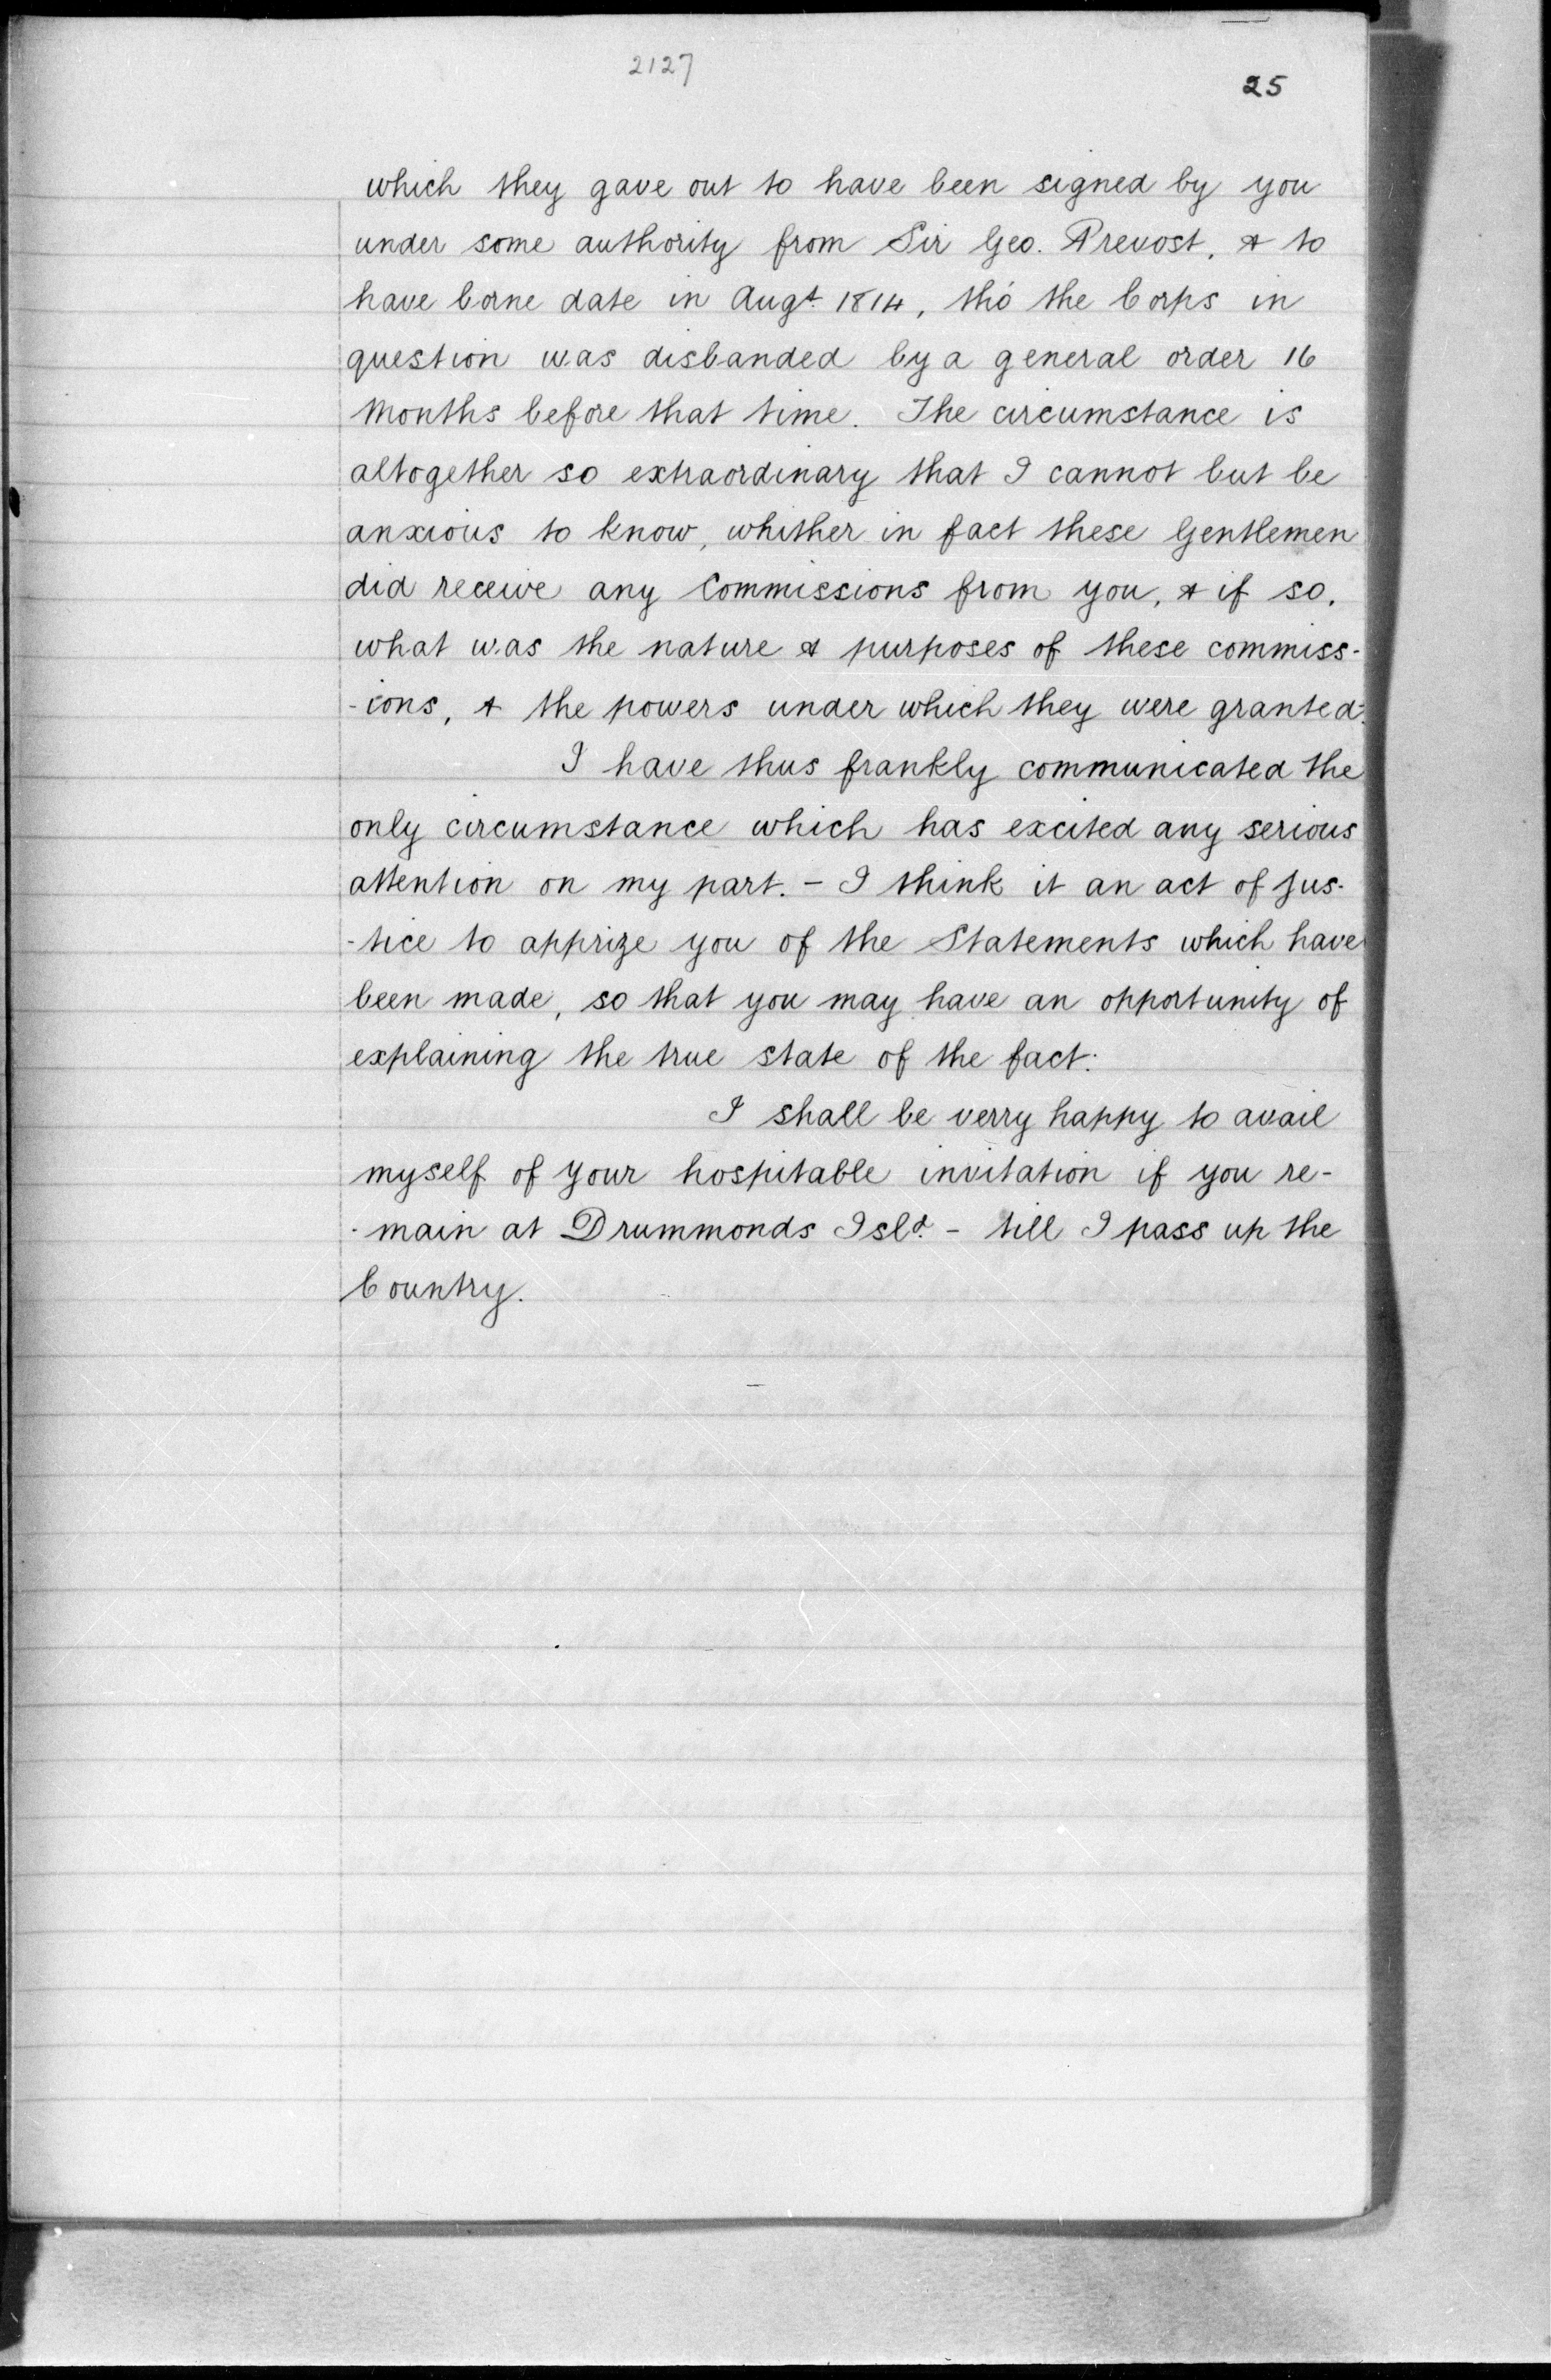 2127
25
which they gave out to have been signed by you
under some authority from Sir Geo. Prevost, & to
have borne date in Augt 1814, tho' the Corps in
question was disbanded by a general order 16
Months before that time. The circumstance is
altogether so extraordinary that I cannot but be
anxious to know, whither in fact these Gentlemen
did receive any Commissions from you, & if so,
what was the nature & purposes of these commiss-
-ions, & the powers under which they were granted.
I have thus frankly communicated the
only circumstance which has excited any serious
attention on my part. - I think it an act of jus-
-tice to apprize you of the Statements which have
been made, so that you may have an opportunity of
explaining the true state of the fact.
I shall be verry happy to avail
myself of your hospitable invitation if you re-
-main at Drummonds Isld. - till I pass up the
Country.